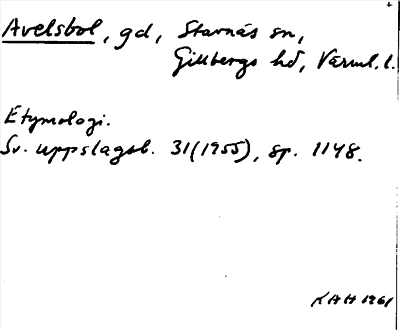 Avelsbol, gd, Stavnäs sn,
Gillbergs hd, Värml. l.
Etymologi.
Sv. uppslagsb. 31 (1955), sp. 1148.
KAH 1961